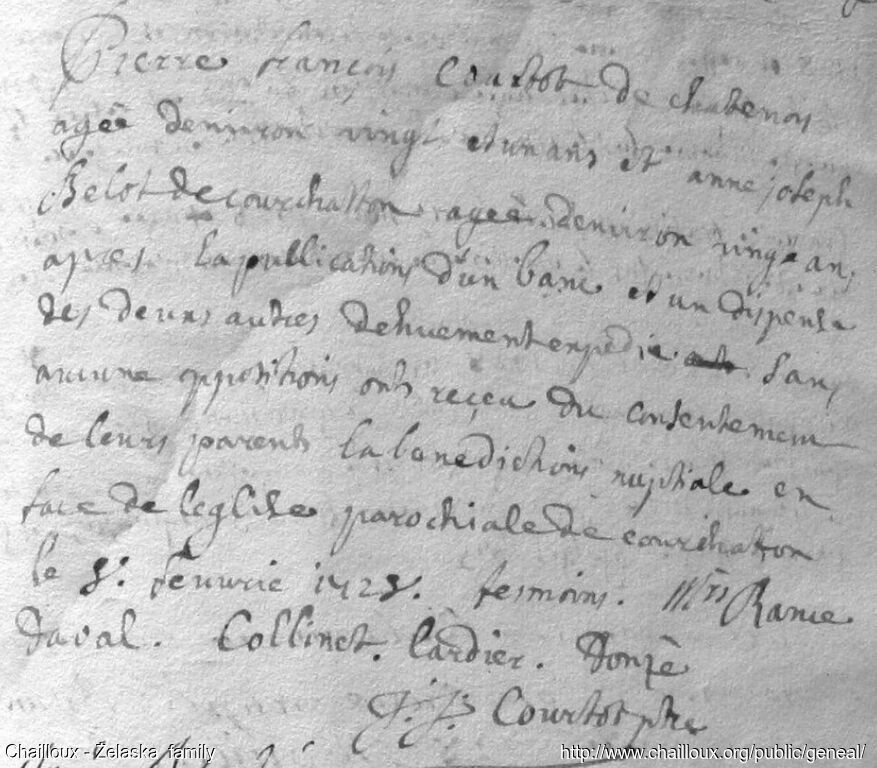 Pierre francois Courtot de chatenois
agée denviron vingt et un ans et anne joseph
Belot de courchatton agée denviron vingt ans
apres la publications dun banc et un dispense
des deuxs autres dehuement expedié sans
aucune oppositions onts reçeu du consentement
de leurs parents la benedictions nuptiale en
face de leglise parochiale de courchatton
le 8. feuvrie 1728. tesmoins. Mrs Rance
Daval. Collinet. lardier. Donzé
Courtot ptre
Chailloux - Želaska family
http://www.chailloux.org/public/geneal/